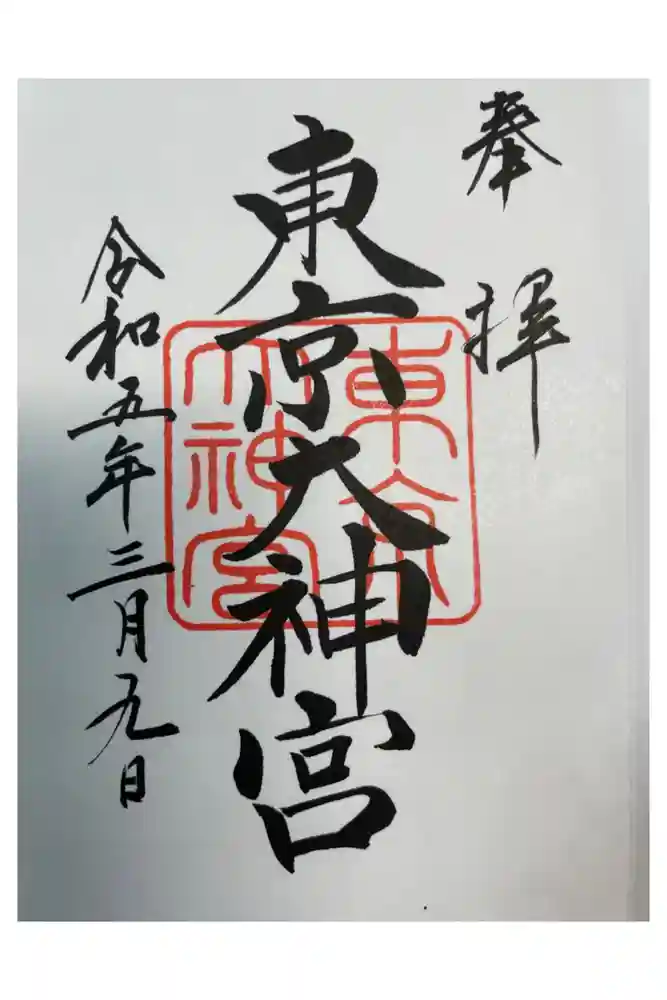 奉拝
東京大神宮
令和五年三月九日
東京
大神宮